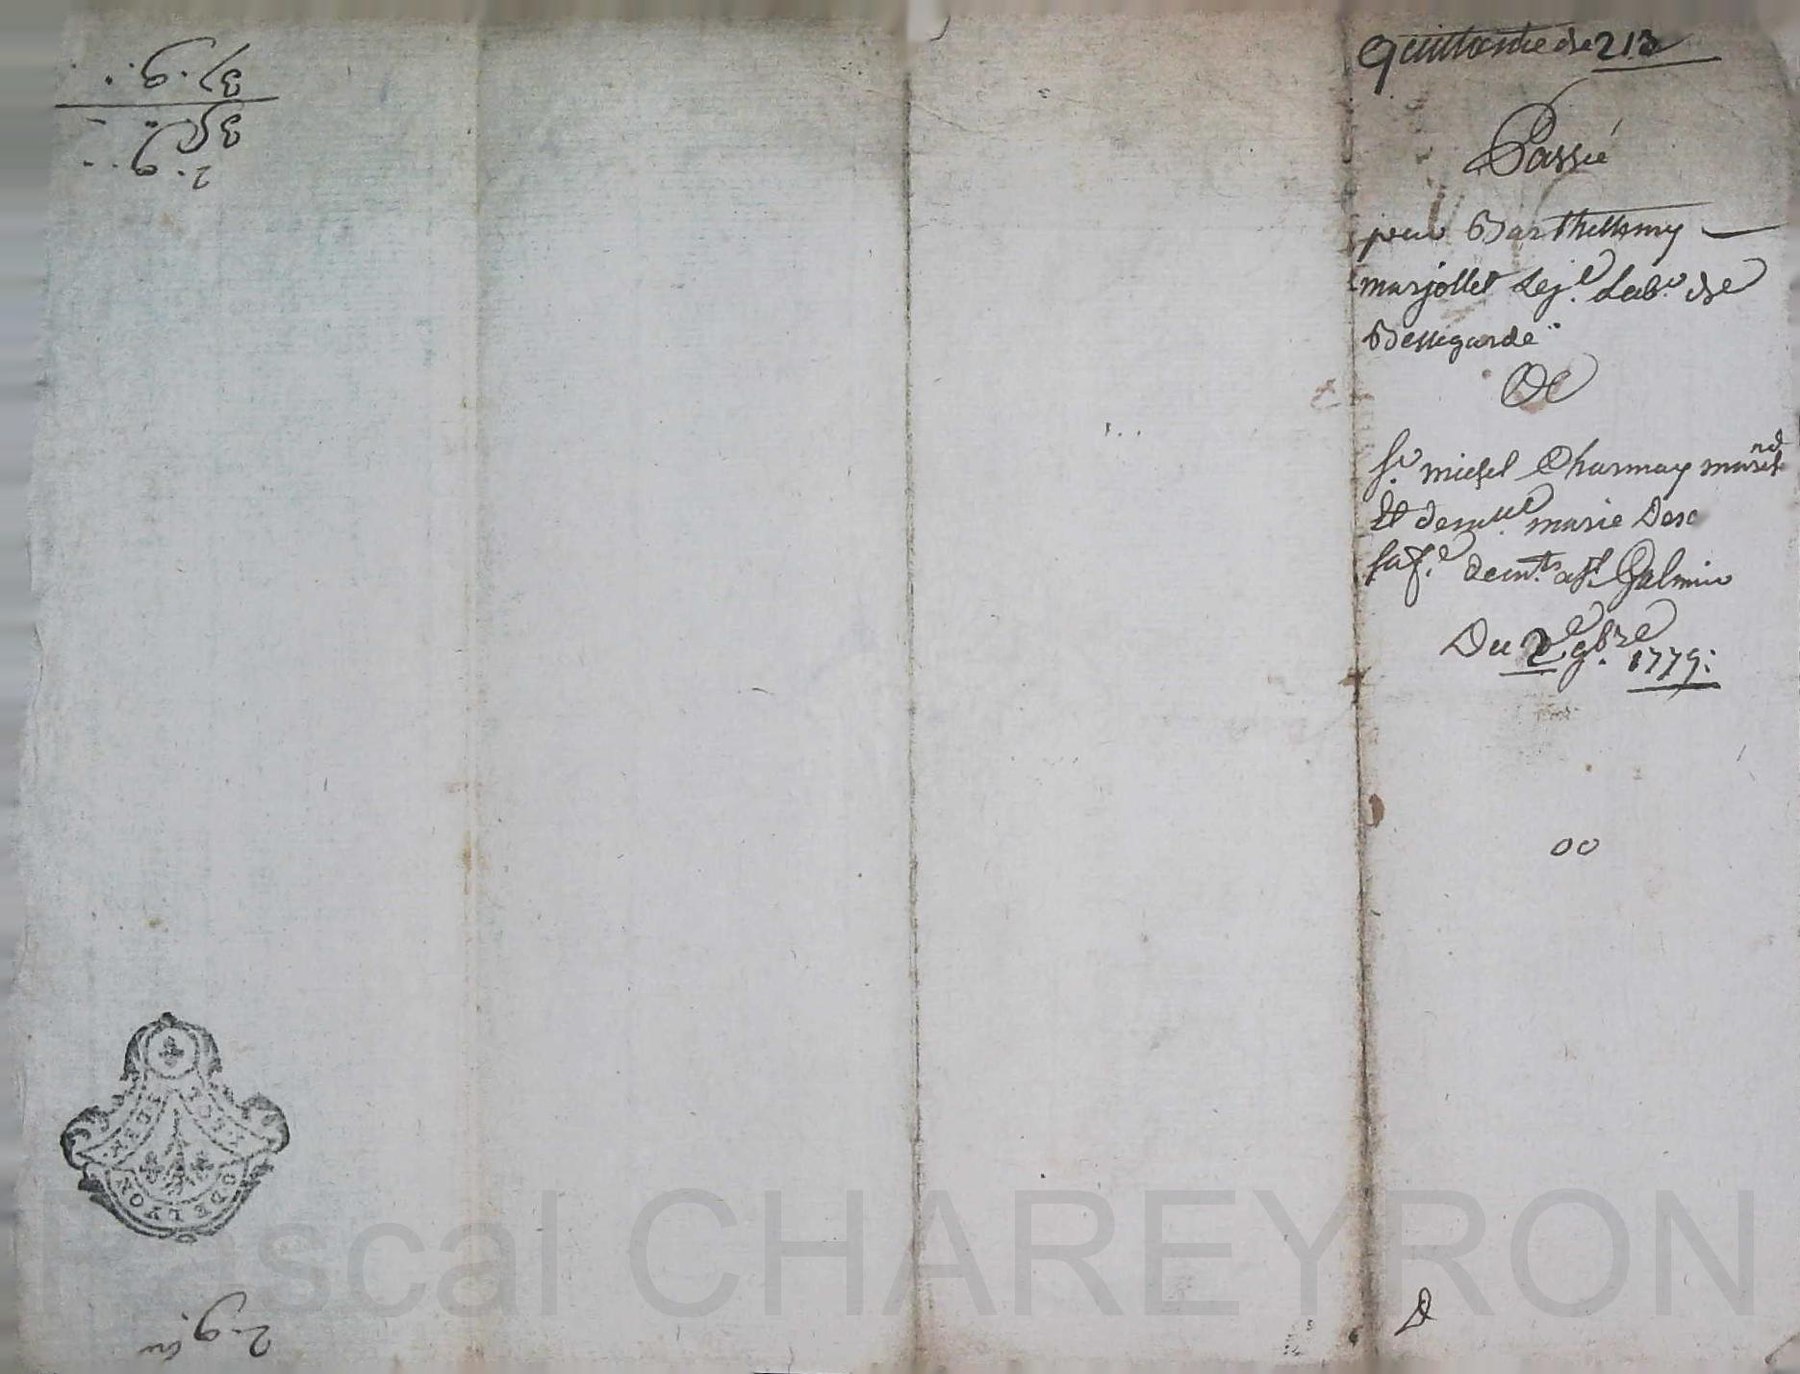 Quittance de 213
Passé
pour Barthellemy
marjollet Lej.e Lab.r de
Bellegarde
De
S.r michel Charmay march.nd
Et dem.lle marie
sa f.e dem.ts a s.t Galmier
Du 2e 9b.re 1779:
00
DE LYON
2.9.
Pascal CHAREYRON